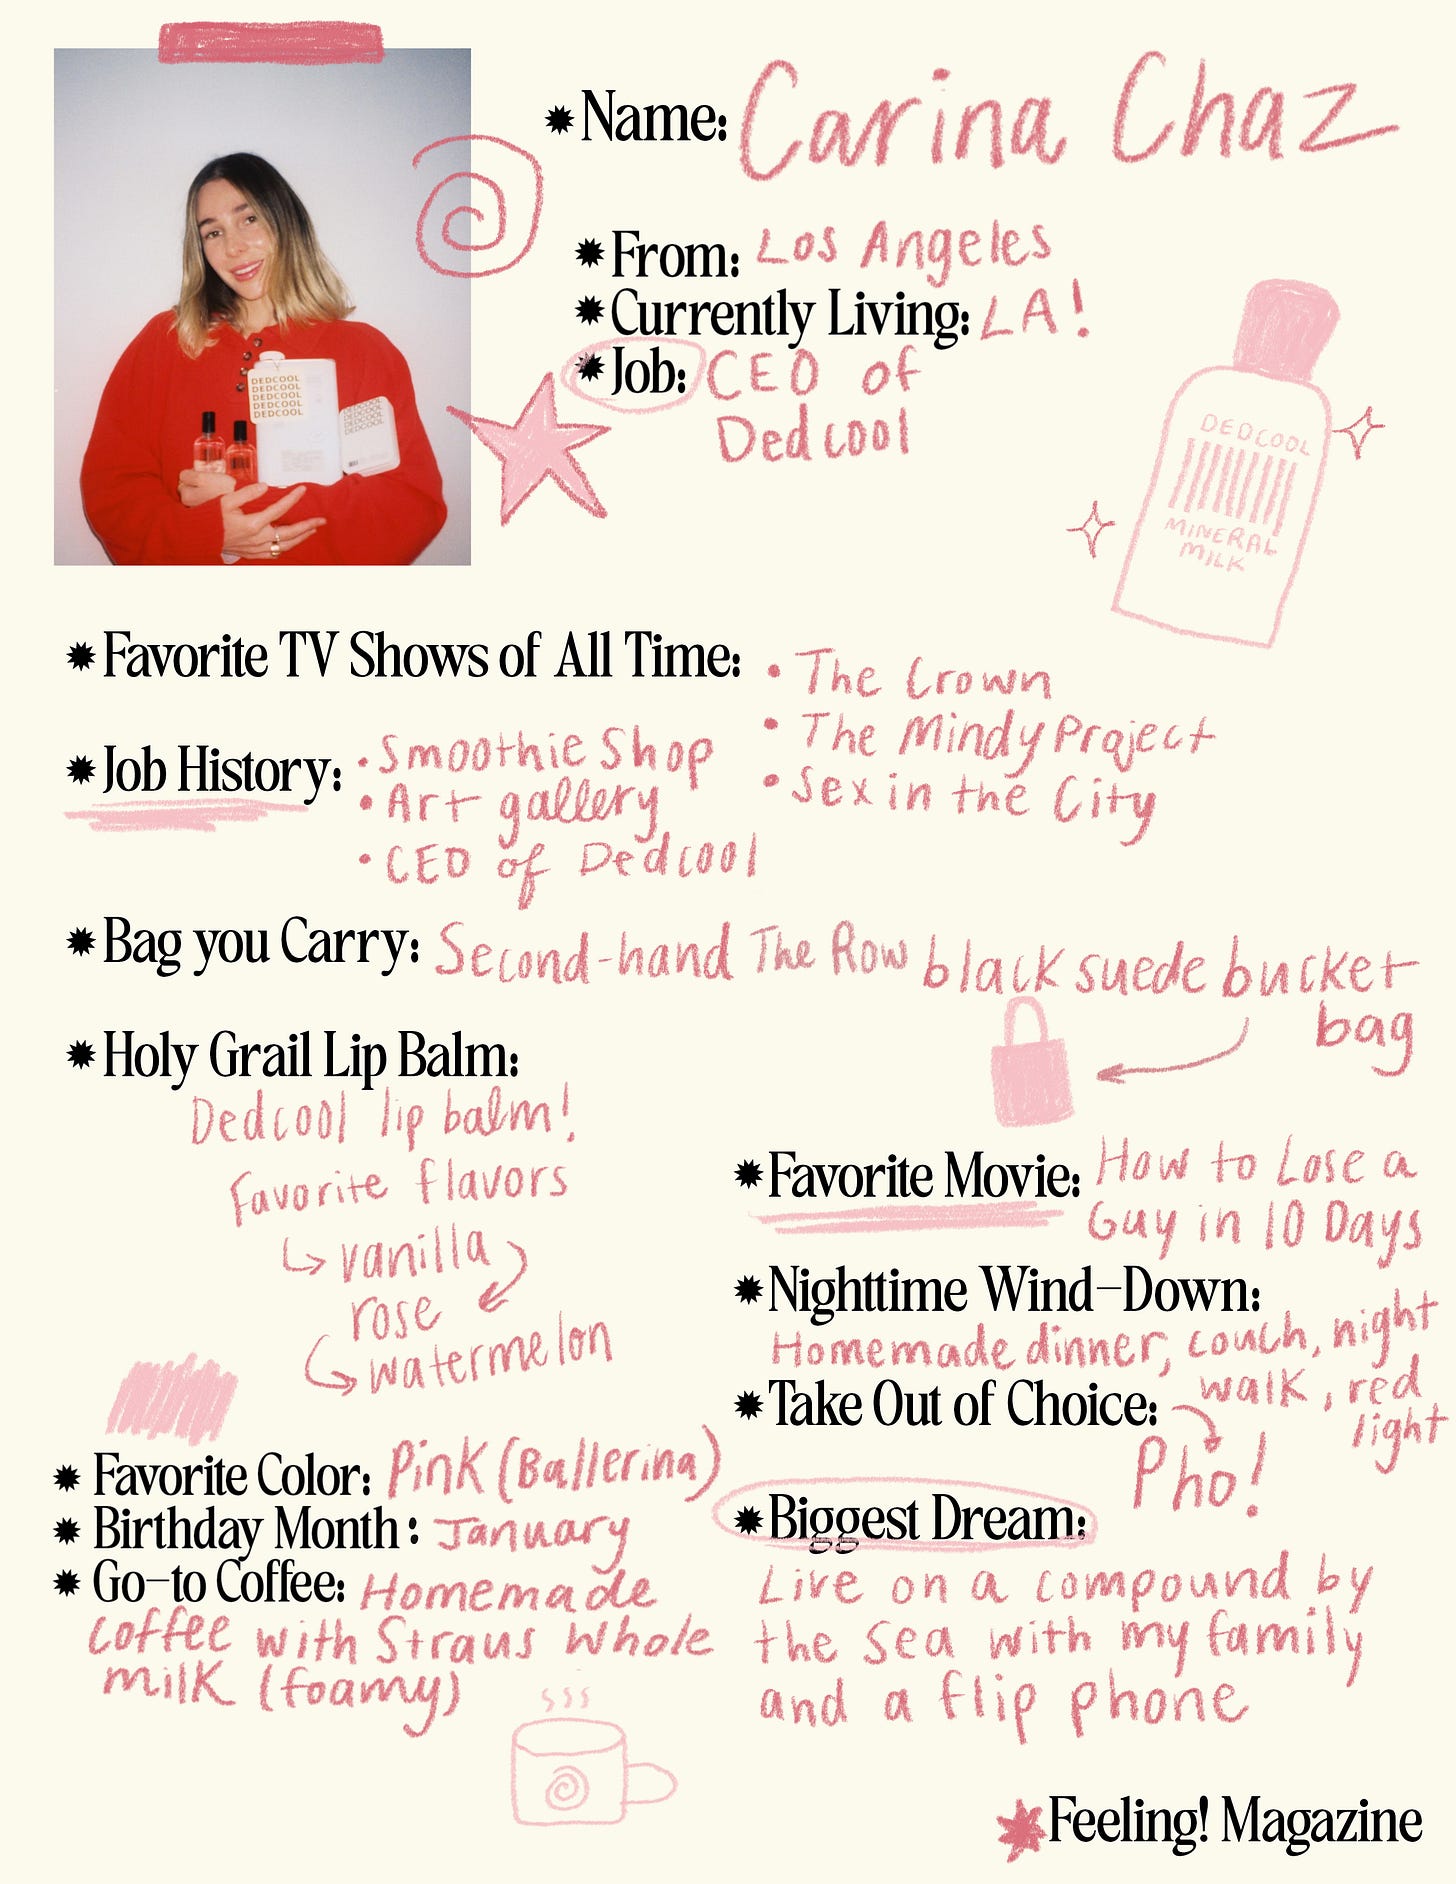 Name: Carina Chaz
From: Los Angeles
Currently Living: LA!
Job: CEO of
Dedcool
DEDCOOL
DEDCOOL
DEDCOOL
DEDCOOL
DEDCOOL
DEDCOOL
DEDCOOL
DEDCOOL
DEDCOOL
MINERAL
MILK
Favorite TV Shows of All Time:
• The Crown
• The Mindy Project
• Sex in the City
Job History:
• Smoothie Shop
• Art gallery
• CEO of Dedcool
Bag you Carry: Second-hand The Row black suede bucket
bag
Holy Grail Lip Balm:
Dedcool lip balm!
Favorite flavors
vanilla
rose
watermelon
Favorite Movie: How to Lose a
Guy in 10 Days
Nighttime Wind-Down:
Homemade dinner, couch, night
walk, red
light
Take Out of Choice:
Pho!
Favorite Color: Pink (Ballerina)
Birthday Month: January
Go-to Coffee: Homemade
coffee with Straus Whole
milk (foamy)
Biggest Dream:
Live on a compound by
the sea with my family
and a flip phone
Feeling! Magazine